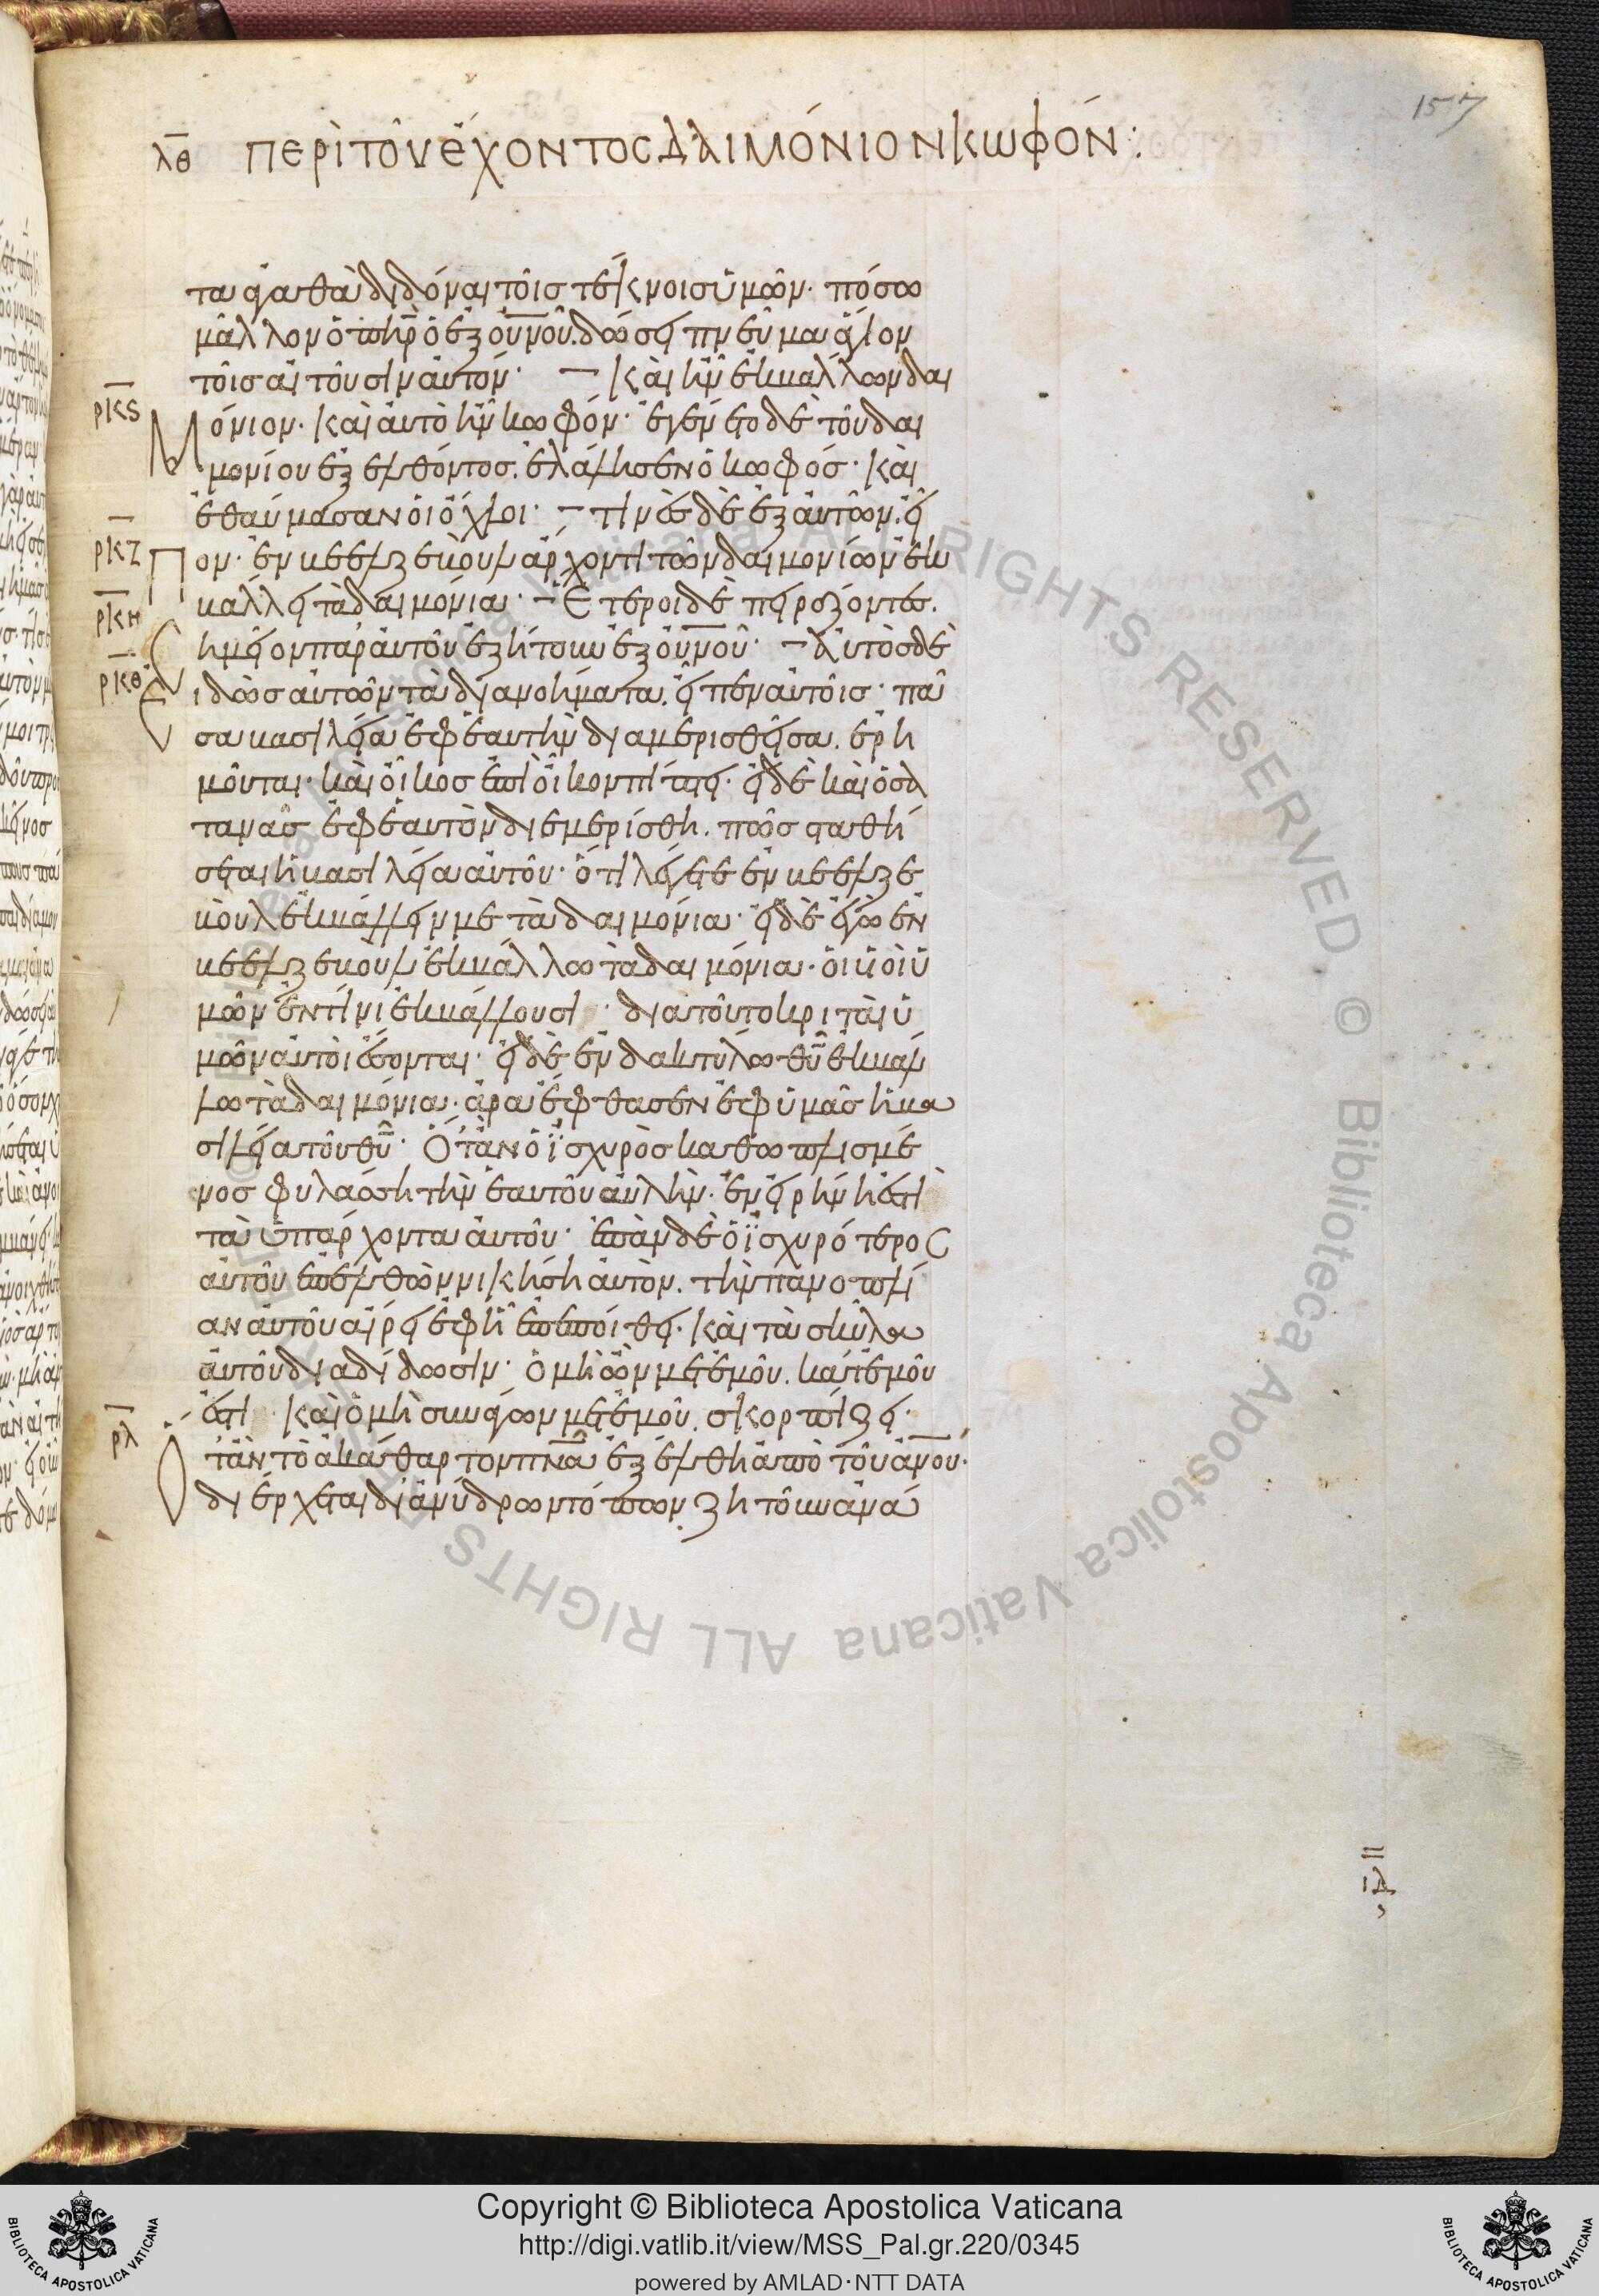 157
λθ ΠΕΡῚ ΤΟῦ ἜΧΟΝΤΟΣ ΔΑΙΜΌΝΙΟΝ ΚΩΦΌΝ:
τα ἀγαθὰ διδόναι τοῖς τέκνοις ὑμῶν· πόσω
μᾶλλον ὁ πηρ ὁ ἐξ οὐνοῦ. δώσει πνεῦμα ἅγιον
τοῖς αἰτοῦσιν αὐτόν· – Καὶ ἦν ἐκβάλλων δαι
ρκς μόνιον. καὶ αὐτὸ ἦν κωφόν· ἐγένετο δὲ τοῦ δαι
μονίου ἐξελθόντος. ἐλάλησεν ὁ κωφός· καὶ
ἐθαύμασαν οἱ ὄχλοι· – τινὲς δὲ ἐξ αὐτῶν. εἶ
ρκζ πον· ἐν βεελζεβοὺλ ἄρχοντι τῶν δαιμονίων ἐκ
ρκη βάλλει τὰ δαιμόνια· – Ἕτεροι δὲ πειράζοντες.
σημεῖον παρ' αὐτοῦ ἐζήτουν ἐξ οὐνοῦ· – Αὐτὸς δὲ
ρκθ εἰδὼς αὐτῶν τὰ διανοήματα. εἶπεν αὐτοῖς· πᾶ
σα βασιλεία ἐφ' ἑαυτὴν διαμερισθεῖσα. ἐρη
μοῦται· καὶ οἶκος ἐπὶ οἶκον πίπτει· εἰ δὲ καὶ ὁ σα
τανᾶς ἐφ' ἑαυτὸν διεμερίσθη. πῶς σταθή
σεται ἡ βασιλεία αὐτοῦ· ὅτι λέγετε ἐν βεελζε
βοὺλ ἐκβάλλειν με τὰ δαιμόνια· εἰ δὲ ἐγὼ ἐν
βεελζεβοὺλ ἐκβάλλω τὰ δαιμόνια· οἱ υἱοὶ ὑ
μῶν ἐν τίνι ἐκβάλλουσι· διὰ τοῦτο κριταὶ ὑ
μῶν αὐτοὶ ἔσονται· εἰ δὲ ἐν δακτύλω θυ ἐκβάλ
λω τὰ δαιμόνια· ἄρα ἔφθασεν ἐφ' ὑμᾶς ἡ βα
σιλεία τοῦ θυ· Ὅταν ὁ ἰσχυρὸς καθωπλισμέ
νος φυλάσση τὴν ἑαυτοῦ αὐλήν· ἐν εἰρήνη ἐστὶ
τὰ ὑπάρχοντα αὐτοῦ· ἐπὰν δὲ ὁ ἰσχυρότερος
αὐτοῦ ἐπελθὼν νικήση αὐτόν. τὴν πανοπλί
αν αὐτοῦ αἴρει ἐφ' ἧ ἐπεποίθει· καὶ τὰ σκῦλα
αὐτοῦ διαδίδωσιν· Ὁ μὴ ὢν μετ' ἐμοῦ. κατ' ἐμοῦ
ἐστι· Καὶ ὁ μὴ συνάγων μετ' ἐμοῦ. σκορπίζει·
ρλ Ὅταν τὸ ἀκάθαρτον πνα ἐξέλθη ἀπὸ τοῦ ανου·
διέρχεται δι' ἀνύδρων τόπων. ζητοῦν ἀνά
Copyright © Biblioteca Apostolica Vaticana
http://digi.vatlib.it/view/MSS_Pal.gr.220/0345
powered by AMLAD·NTT DATA